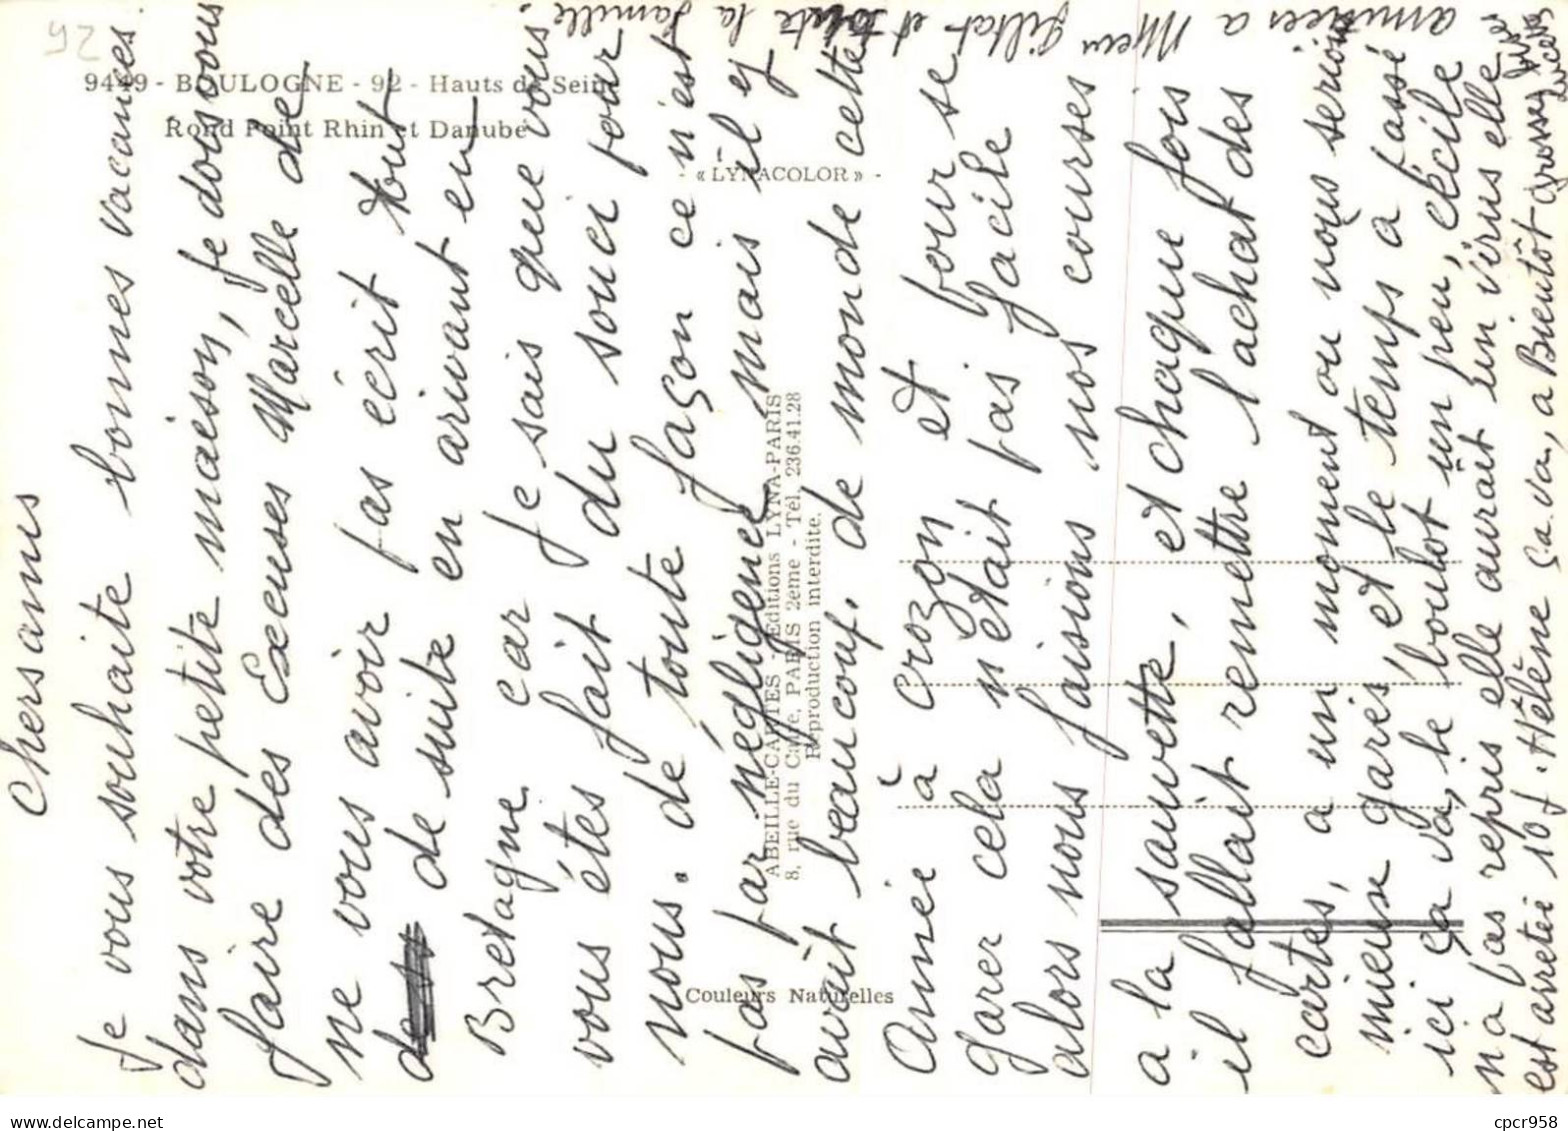 Chers amis
Je vous souhaite bonnes vacances
dans votre petite maison, je dois vous
faire des Excuses Marcelle de
ne vous avoir pas écrit tout
de suite en arivant en
Bretagne car je sais que vous
vous étes fait du souci pour
nous. de toute façon ce n'est
pas par négligence mais il y
avait beaucoup, de monde cette
Année à Crozon et pour se
garer cela n'était pas facile
alors nous faisions nos courses
a la sauvette, et chaque fois
il fallait remettre l'achat des
cartes, a un moment ou nous serions
mieux garés, et le temps a passé
ici ça va, le boulot un peu, Cécile
n'a pas repris elle aurait un virus elle
est arretée 10 j. Hélène ça va, a Bientôt Grosses bises
Lucien
amitiés a et toute la famille.
92
9449 - BOULOGNE - 92 - Hauts de Seine
Rond Point Rhin et Danube
« LYNACOLOR »
ABEILLE-CARTES - Editions LYNA-PARIS
8, rue du Caire, PARIS 2eme - Tél. 236.41.28
Reproduction interdite.
Couleurs Naturelles
www.delcampe.net
cpcr958